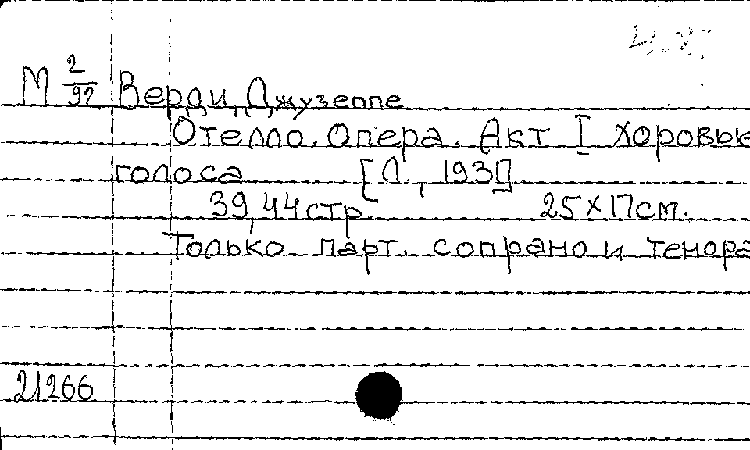 М 2/92 Верди, Джузеппе
Отелло. Опера. Акт I хоровые
голоса [Л., 193]
39, 44 стр. 25х17см.
Только парт. сопрано и тенора
21266